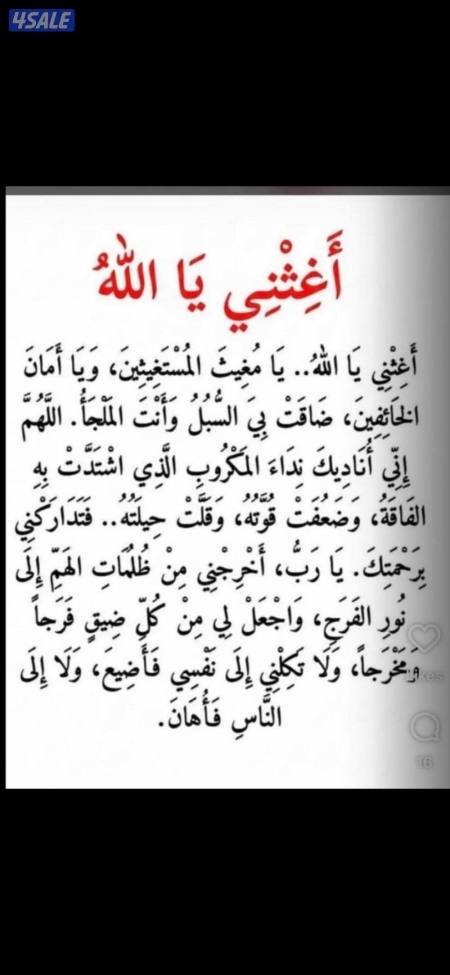 4SALE
أَغِثْنِي يَا اللهُ
أَغِثْنِي يَا اللهُ.. يَا مُغِيثَ المُسْتَغِيثِينَ، وَيَا أَمَانَ
الخَائِفِينَ، ضَاقَتْ بِيَ السُّبُلُ وَأَنْتَ المَلْجَأُ. اللَّهُمَّ
إِنِّي أُنَادِيكَ نِدَاءَ المَكْرُوبِ الَّذِي اشْتَدَّتْ بِهِ
الفَاقَةُ، وَضَعُفَتْ قُوَّتُهُ، وَقَلَّتْ حِيلَتُهُ.. فَتَدَارَكْنِي
بِرَحْمَتِكَ. يَا رَبُّ، أَخْرِجْنِي مِنْ ظُلُمَاتِ الهَمِّ إِلَى
نُورِ الفَرَجِ، وَاجْعَلْ لِي مِنْ كُلِّ ضِيقٍ فَرَجاً
وَمَخْرَجاً، وَلَا تَكِلْنِي إِلَى نَفْسِي فَأَضِيعَ، وَلَا إِلَى
النَّاسِ فَأُهَانَ.
Likes
16